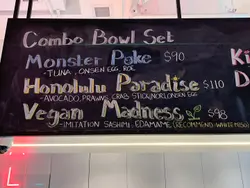 Combo Bowl Set
Monster Poke $90
- TUNA, ONSEN EGG, ROE
Honolulu Paradise $110
- AVOCADO, PRAWNS, CRAB STICK, ONSEN EGG
Vegan Madness $98
- IMITATION SASHIMI, EDAMAME (RECOMMEND WHITE MISO)